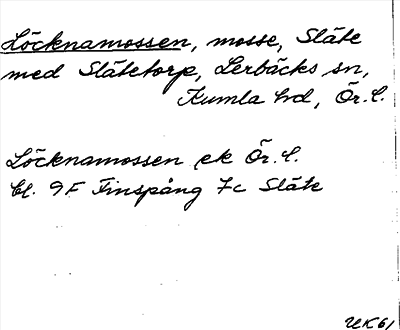 Löcknamossen, mosse, Släte
med Slätetorp, Lerbäcks sn,
Kumla hd, Ör. l.
Löcknamossen ek Ör. l.
bl. 9F Finspång 7c Släte
UK61